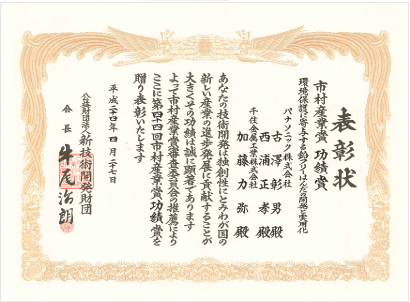 表彰状
市村産業賞 功績賞
環境保護に寄与する鉛フリーはんだの開発と実用化
パナソニック株式会社
古澤彰男殿
西浦孝殿
千住金属工業株式会社
加藤力弥殿
あなたの技術開発は独創性にとみわが国の
新しい産業の進歩発展に貢献することが
大きくその功績は誠に顕著であります
よって市村産業賞審査委員会の推薦により
ここに第四十四回市村産業賞功績賞を
贈り表彰いたします
平成二十四年四月二十七日
公益財団法人新技術開発財団
会長 牛尾治朗